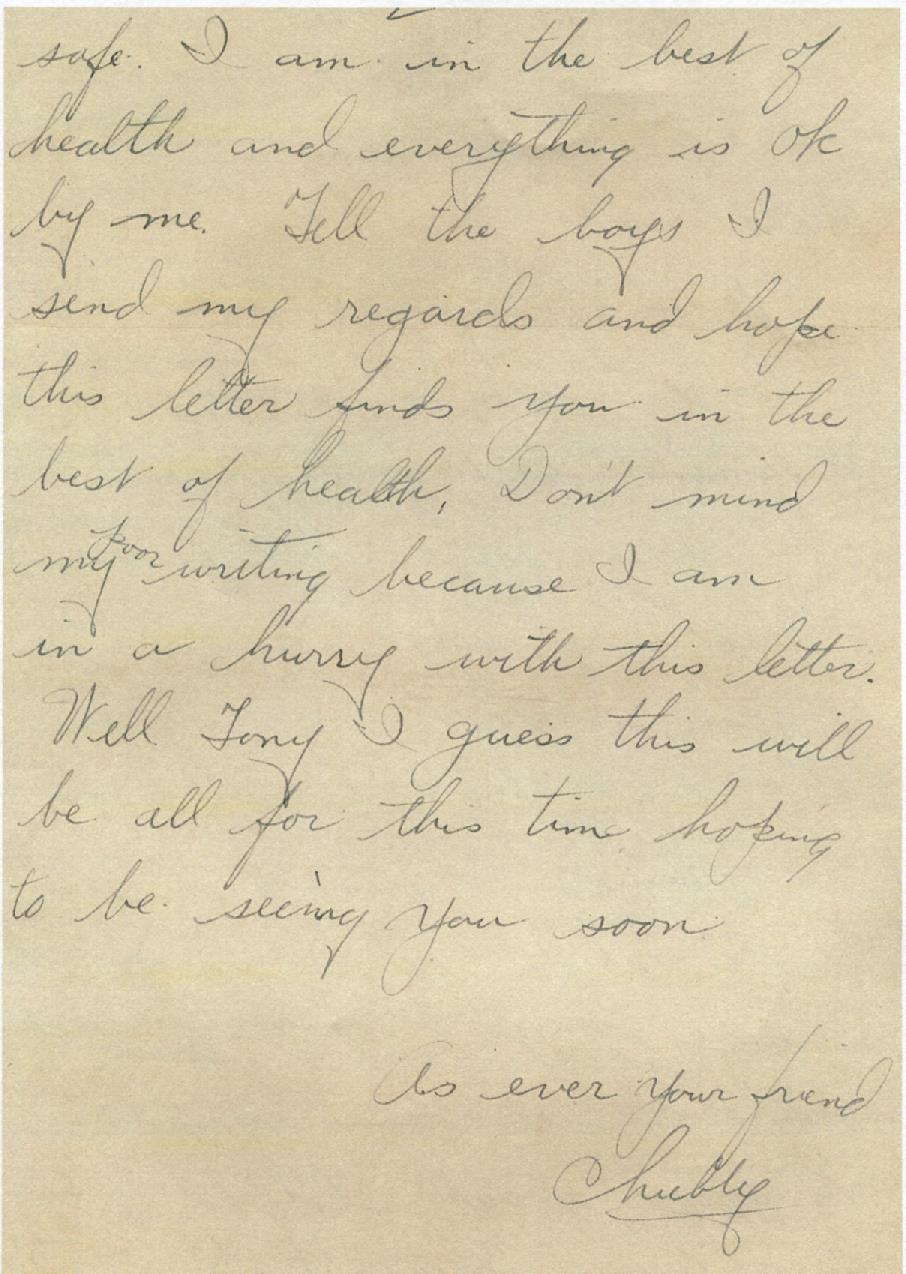 safe. I am in the best of
health and everything is ok
by me. Tell the boys I
send my regards and hope
this letter finds you in the
best of health, Don't mind
my poor writing because I am
in a hurry with this letter.
Well Tony I guess this will
be all for this time hoping
to be seeing you soon
As ever your friend
Chubby